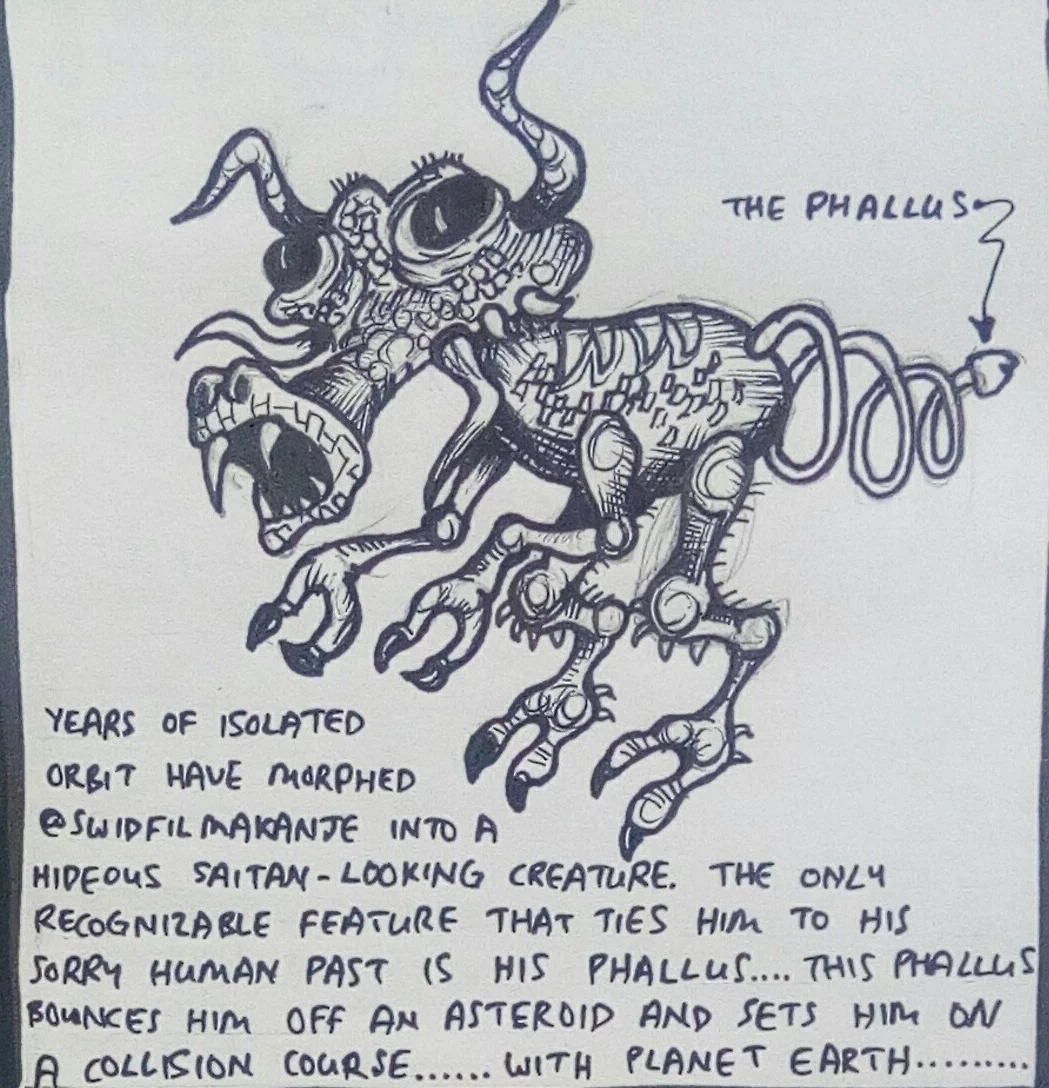 THE PHALLUS
YEARS OF ISOLATED
ORBIT HAVE MORPHED
@SWIDFILMAKANJE INTO A
HIDEOUS SAITAN-LOOKING CREATURE. THE ONLY
RECOGNIZABLE FEATURE THAT TIES HIM TO HIS
SORRY HUMAN PAST IS HIS PHALLUS.... THIS PHALLUS
BOUNCES HIM OFF AN ASTEROID AND SETS HIM ON
A COLLISION COURSE...... WITH PLANET EARTH..........